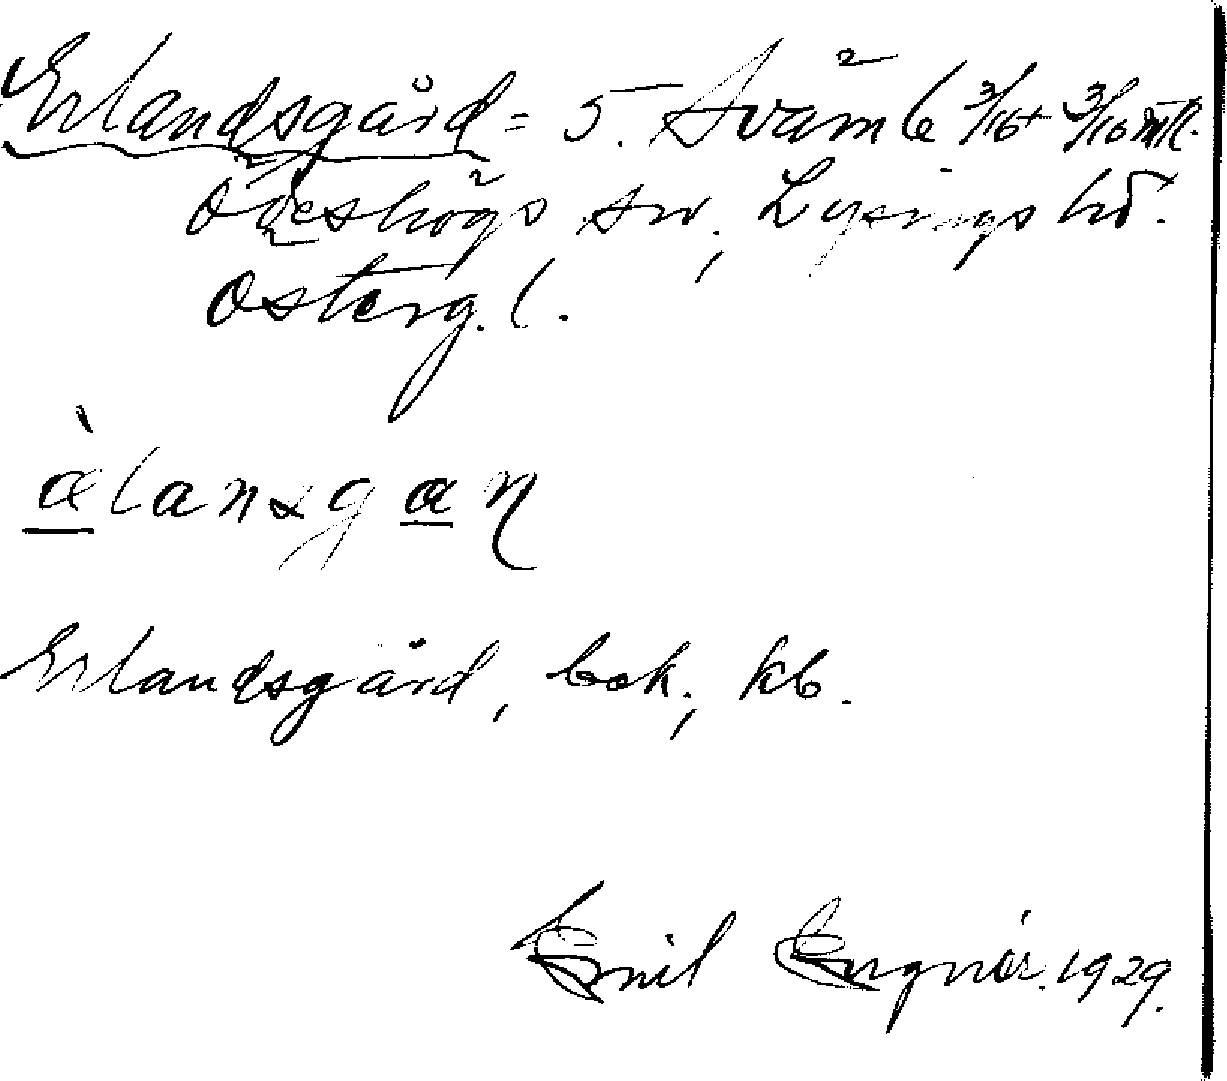 Erlandsgård = 5. Svämb 3/16 + 3/16 mtl.
Ödeshögs sn; Lysings hd.
Österg. l.
àlansgaɳ
Erlandsgård, bok; kb.
Emil 1929.